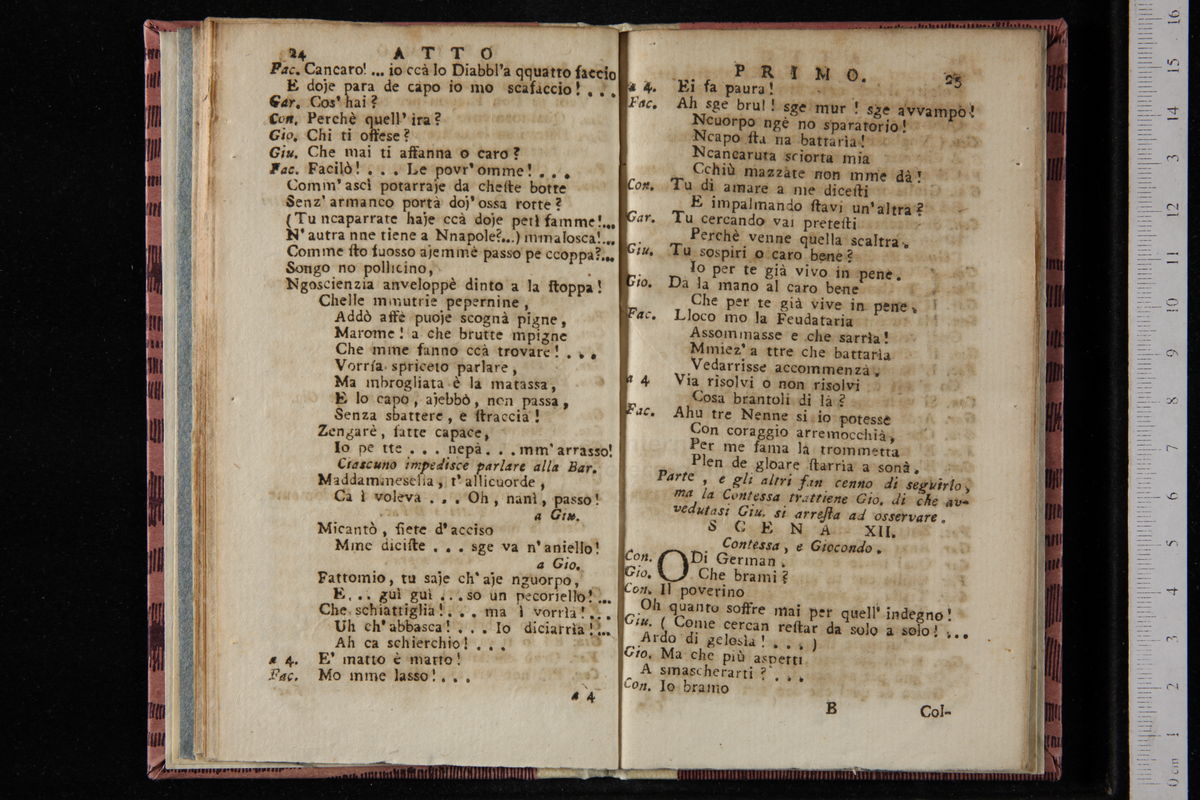 24 ATTO
Fac. Cancaro!... io ccà lo Diabbl'a qquatto faccio
E doje para de capo io mo scafaccio!...
Gar. Cos' hai?
Con. Perchè quell' ira?
Gio. Chi ti offese?
Giu. Che mai ti affanna o caro?
Fac. Facilò!... Le povr' omme!...
Comm' ascì potarraje da cheste botte
Senz' armanco portà doj' ossa rotte?
(Tu ncaparrate haje ccà doje peti famme!...
N' autra nne tiene a Nnapole?...) mmalosca!...
Comme sto fuosso ajemmè passo pe ccoppa?...
Songo no pollicino,
Ngoscienzia anveloppè dinto a la stoppa!
Chelle mmutrie pepernine,
Addò affè puoje scognà pigne,
Marome! a che brutte mpigne
Che mme fanno ccà trovare!...
Vorría spriceto parlare,
Ma mbrogliata è la matassa,
E lo capo, ajebbò, non passa,
Senza sbattere, e straccià!
Zengarè, fatte capace,
Io pe tte... nepà... mm' arrasso!
Ciascuno impedisce parlare alla Bar.
Maddaminesella, t' allicuorde,
Ca ì voleva... Oh, nanì, passo!
a Giu.
Micantò, siete d' acciso
Mme diciste... sge va n' aniello!
a Gio.
Fattomio, tu saje ch' aje nguorpo,
E... guì guì... so un pecoriello!...
Che schiattiglia!... ma ì vorrìa!...
Uh ch' abbasca!... Io diciarrìa!...
Ah ca schierchio!...
a 4. E' matto è matto!
Fac. Mo mme lasso!...
a 4
PRIMO. 25
a 4. Ei fa paura!
Fac. Ah sge brul! sge mur! sge avvampò!
Ncuorpo ngè no sparatorio!
Ncapo sta na battarìa!
Ncancaruta sciorta mia
Cchiù mazzate non mme dà!
Con. Tu di amare a me dicesti
E impalmando stavi un' altra?
Gar. Tu cercando vai pretesti
Perchè venne quella scaltra.
Giu. Tu sospiri o caro bene?
Io per te già vivo in pene.
Gio. Da la mano al caro bene
Che per te già vive in pene.
Fac. Lloco mo la Feudataria
Assommasse e che sarrìa!
Mmiez' a ttre che battarìa
Vedarrisse accommenzà.
a 4 Via risolvi o non risolvi
Cosa brantoli di là?
Fac. Ahu tre Nenne si io potesse
Con coraggio arremocchià,
Per me fama la trommetta
Plen de gloare starria a sonà.
Parte, e gli altri fan cenno di seguirlo,
ma la Contessa trattiene Gio. di che av-
vedutasi Giu. si arresta ad osservare.
SCENA XII.
Contessa, e Giocondo.
Con. ODi German.
Gio. Che brami?
Con. Il poverino
Oh quanto soffre mai per quell' indegno!
Giu. (Come cercan restar da solo a solo!...
Ardo di gelosìa!...)
Gio. Ma che più aspetti
A smascherarti?...
Con. Io bramo
B Col-
16
15
14
13
12
11
10
9
8
7
6
5
4
3
2
1
0 cm